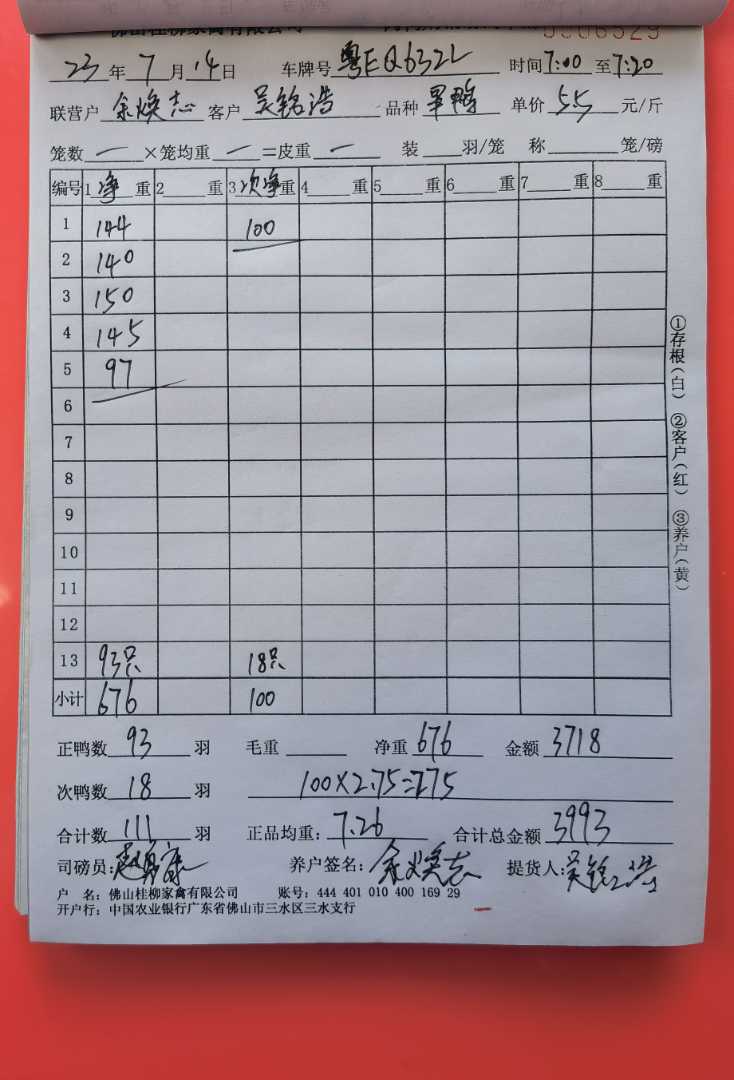 佛山桂柳家禽有限公司
23年7月14日 车牌号粤EQ632L 时间7:00至7:20
联营户余焕志 客户吴铭浩 品种单鸭 单价5.5元/斤
笼数 — ×笼均重 — =皮重 — 装 羽/笼 称 笼/磅
编号 1净重 2 重 3次净重 4 重 5 重 6 重 7 重 8 重
1 144 100
2 140
3 150
4 145
5 97
6
7
8
9
10
11
12
13 93只 18只
小计 676 100
正鸭数93羽 毛重 净重676 金额3718
次鸭数18羽 100×2.75=275
合计数111羽 正品均重:7.26 合计总金额3993
司磅员: 养户签名:余焕志 提货人:吴铭浩
户 名:佛山桂柳家禽有限公司 账号:444 401 010 400 169 29
开户行:中国农业银行广东省佛山市三水区三水支行
①存根(白) ②客户(红) ③养户(黄)